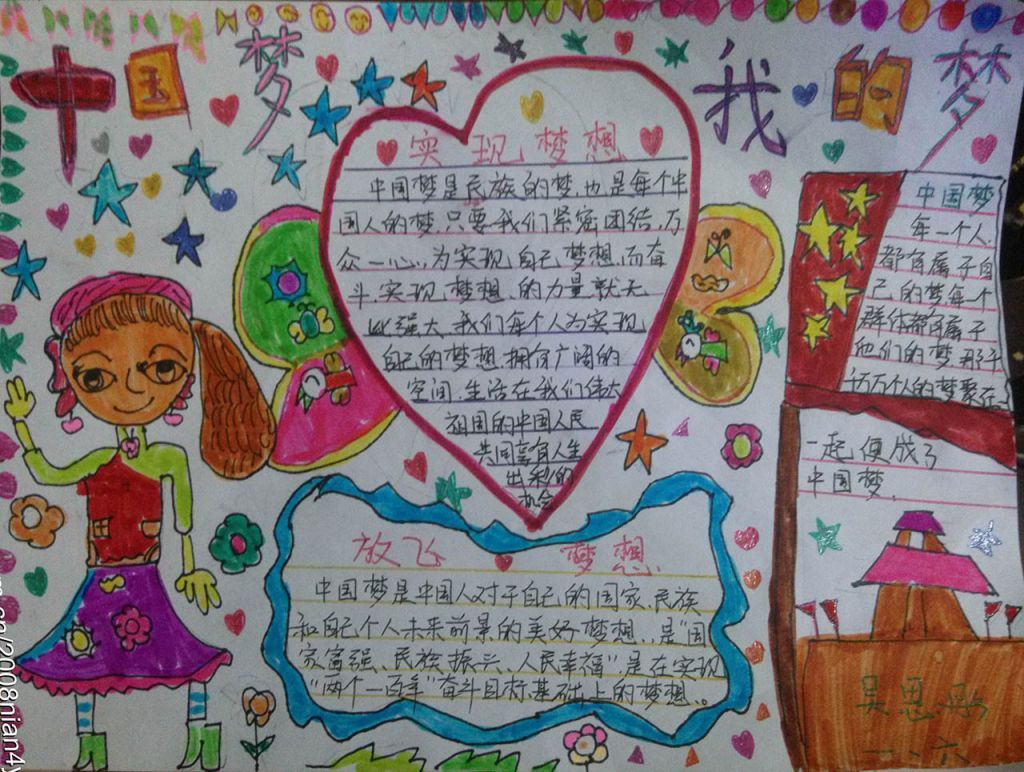 中国梦 我的梦
实现梦想
中国梦是民族的梦,也是每个中
国人的梦,只要我们紧密团结,万
众一心,为实现自己梦想而奋
斗,实现梦想的力量就无
比强大,我们每个人为实现
自己的梦想拥有广阔的
空间.生活在我们伟大
祖国的中国人民
共同享有人生
出彩的
机会
放飞 梦想
中国梦是中国人对于自己的国家、民族
和自己个人未来前景的美好梦想,是“国
家富强、民族振兴、人民幸福”.是在实现
“两个一百年”奋斗目标基础上的梦想。
中国梦
每一个人
都有属于自
己的梦每个
群体都有属于
他们的梦那千
千万万个人的梦聚在
一起便成了
中国梦.
吴思彤
一、六